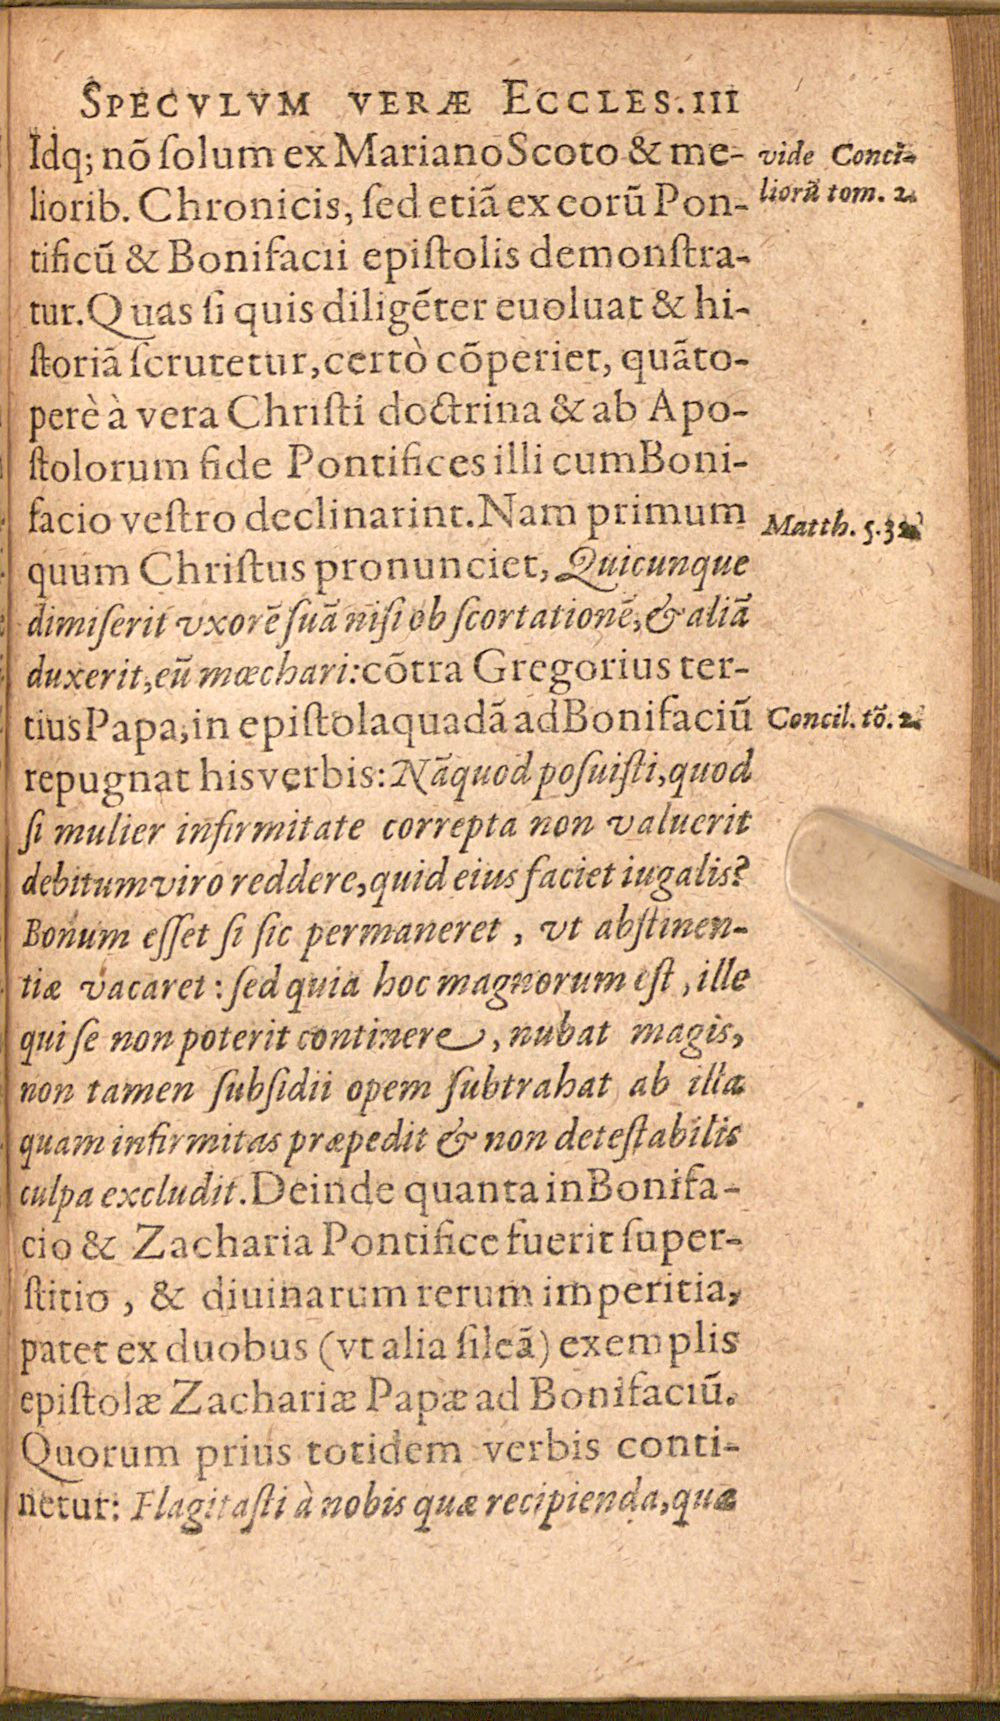 SPECVLVM VERÆ ECCLES. III
Idq; nõ ſolum ex Mariano Scoto & me-
liorib. Chronicis, ſed etiã ex eorũ Pon-
tificũ & Bonifacii epiſtolis demonſtra-
tur. Quas ſi quis diligẽter euoluat & hi-
ſtoriã ſcrutetur, certò cõperiet, quãto-
perè à vera Chriſti doctrina & ab Apo-
ſtolorum fide Pontifices illi cum Boni-
facio veſtro declinarint. Nam primum
quum Chriſtus pronunciet, Quicunque
dimiſerit vxorẽ ſuã niſi ob ſcortationẽ, & aliã
duxerit, eũ mœchari: cõtra Gregorius ter-
tius Papa, in epiſtola quadã ad Bonifaciũ
repugnat his verbis: Nã quod poſuiſti, quod
ſi mulier infirmitate correpta non valuerit
debitum viro reddere, quid eius faciet iugalis?
Bonum eſſet ſi ſic permaneret, vt abſtinen-
tiæ vacaret: ſed quia hoc magnorum eſt, ille
qui ſe non poterit continere, nubat magis,
non tamen ſubſidii opem ſubtrahat ab illa
quam infirmitas præpedit & non deteſtabilis
culpa excludit. Deinde quanta in Bonifa-
cio & Zacharia Pontifice fuerit ſuper-
ſtitio, & diuinarum rerum imperitia,
patet ex duobus (vt alia ſileã) exemplis
epiſtolæ Zachariæ Papæ ad Bonifaciũ.
Quorum prius totidem verbis conti-
netur: Flagitaſti à nobis quæ recipienda, quæ
vide Conci-
liorũ tom. 2.
Matth. 5. 32
Concil. tõ. 2.